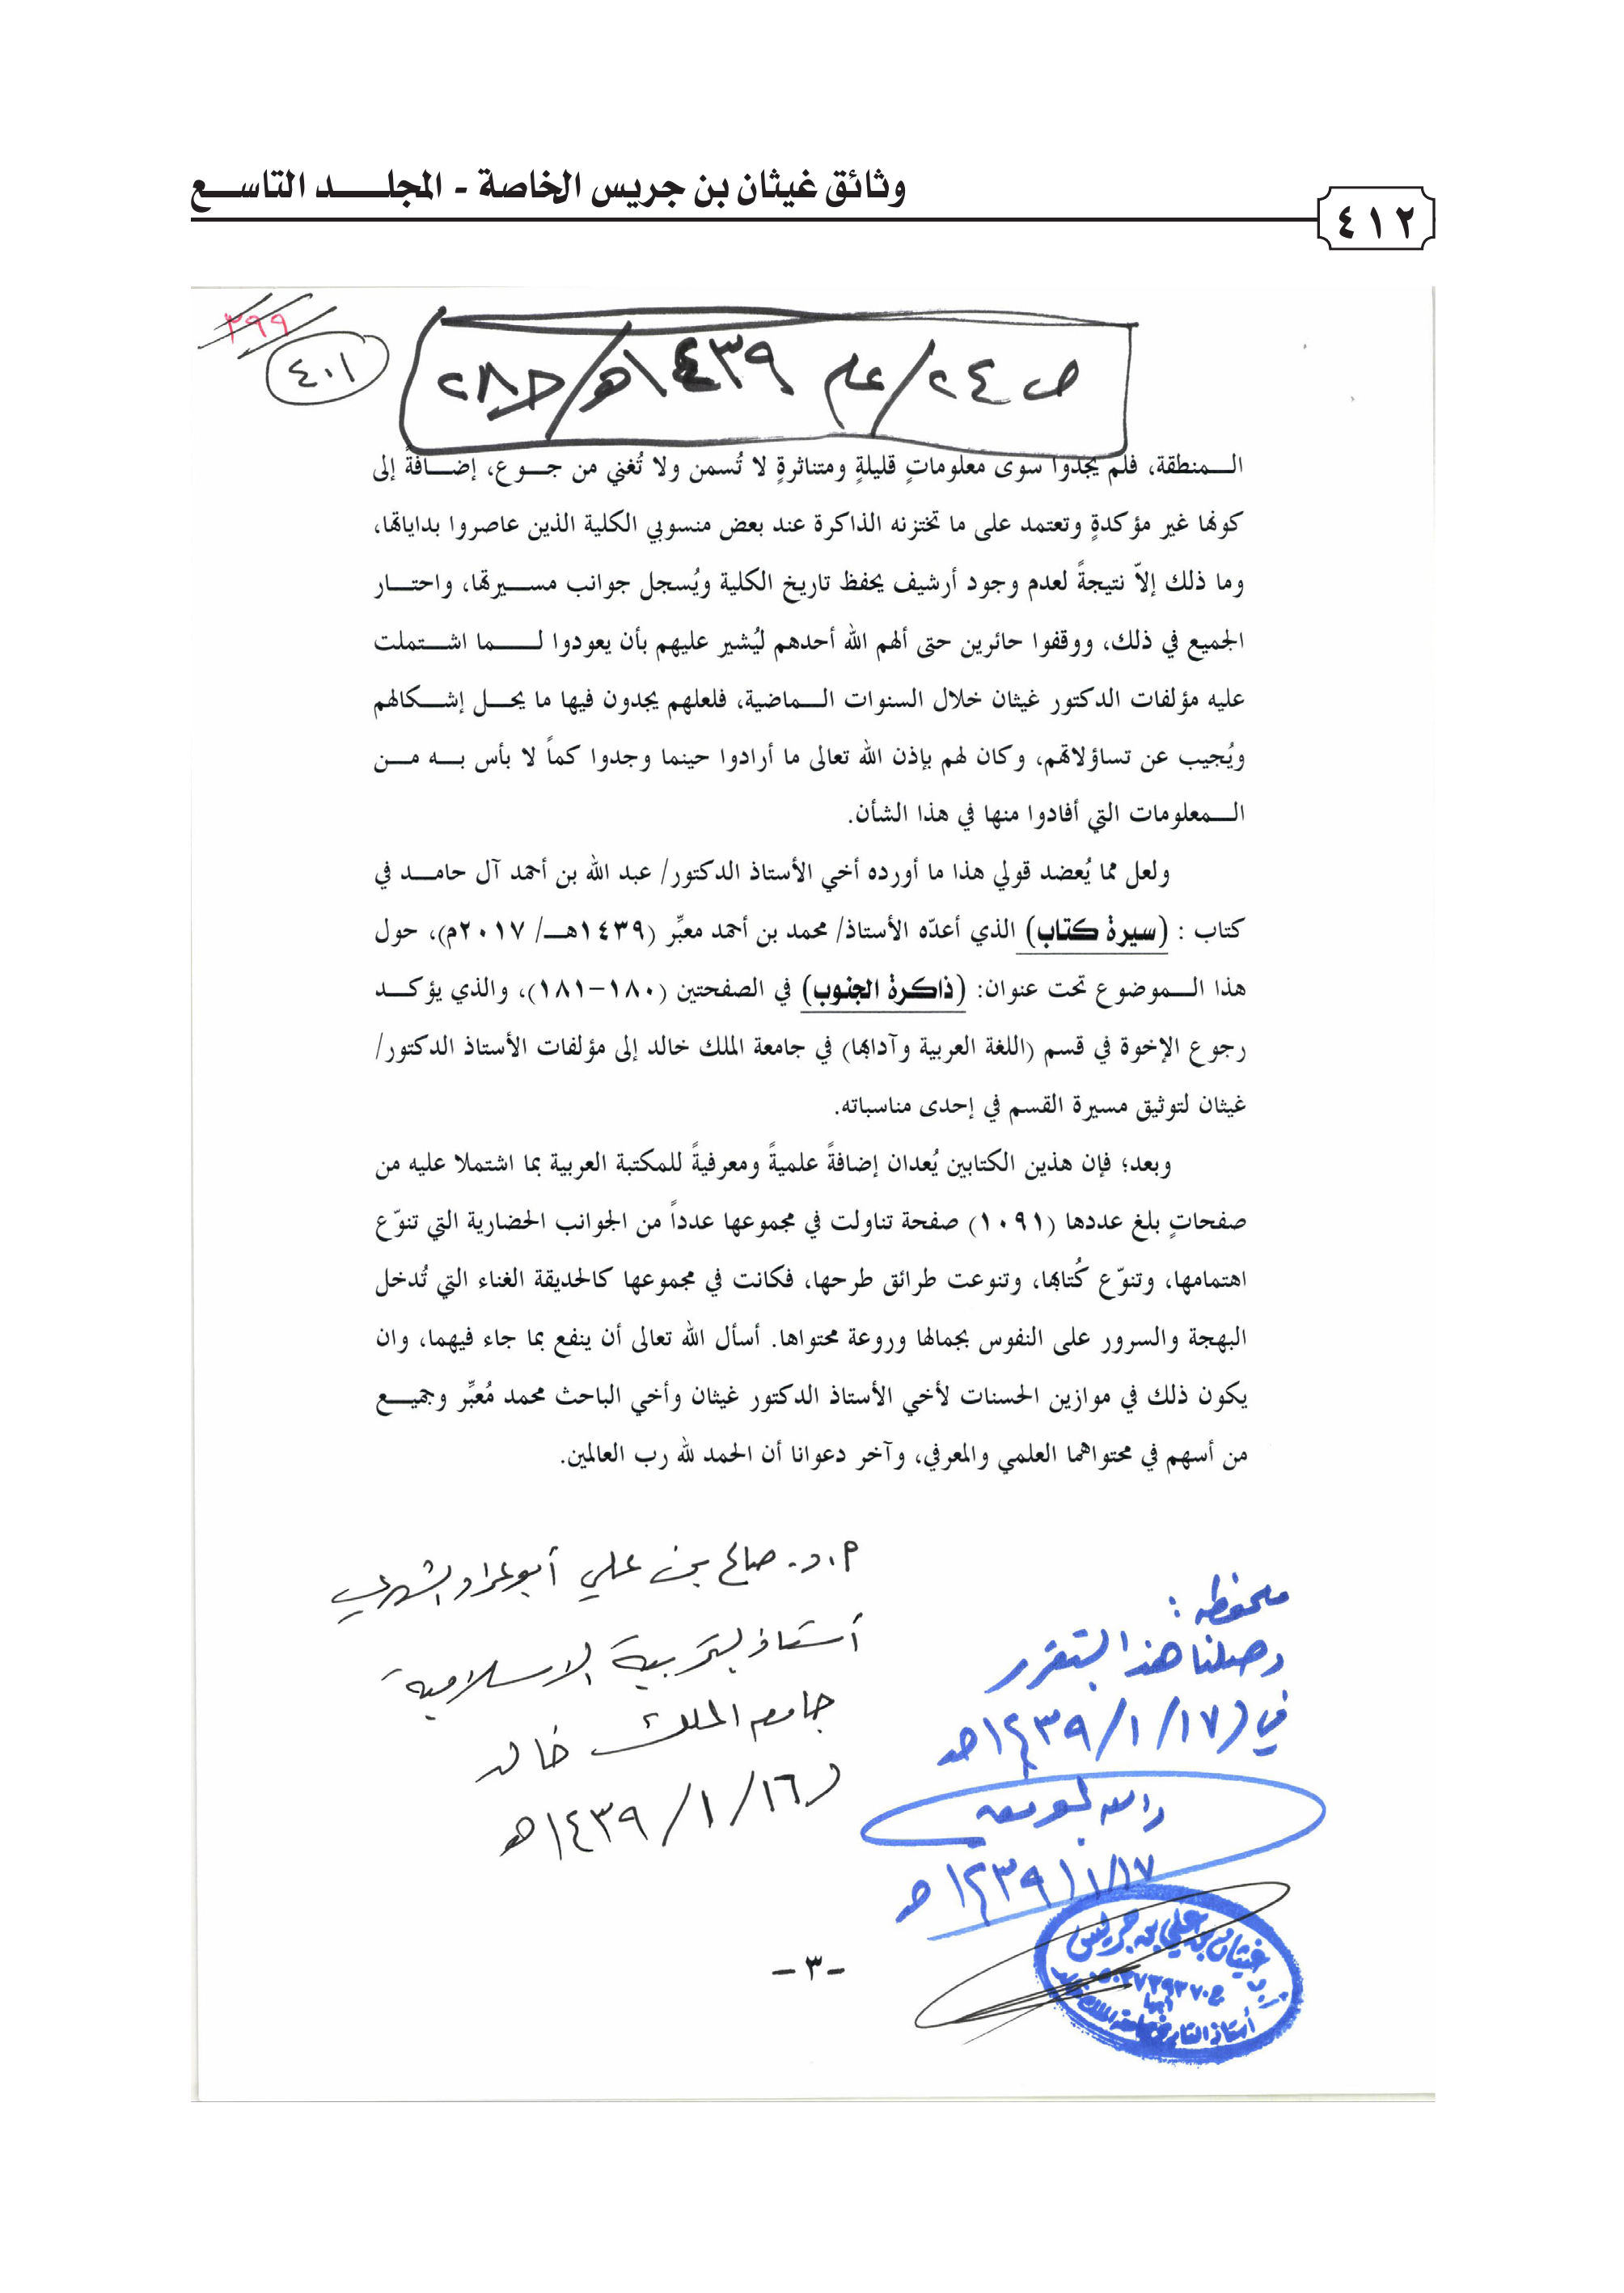 وثائق غيثان بن جريس الخاصة - المجلـــد التاســـع
٤١٢
٣٩٩
٤٠١
ص ٢٤/ علم ١٤٣٩هـ/ ح٢٨
الـــمنطقة، فلم يجدوا سوى معلوماتٍ قليلةٍ ومتناثرةٍ لا تُسمن ولا تُغني من جـــوع، إضـــافةً إلى
كونها غير مؤكدةٍ وتعتمد على ما تختزنه الذاكرة عند بعض منسوبي الكلية الذين عاصروا بداياتها،
وما ذلك إلاّ نتيجةً لعدم وجود أرشيف يحفظ تاريخ الكلية ويُسجل جوانب مســـيرتها، واحتـــار
الجميع في ذلك، ووقفوا حائرين حتى ألهم الله أحدهم ليُشير عليهم بأن يعودوا لـــــما اشـــتملت
عليه مؤلفات الدكتور غيثان خلال السنوات الـــماضية، فلعلهم يجدون فيها ما يحـــل إشـــكالهم
ويُجيب عن تساؤلاتهم، وكان لهم بإذن الله تعالى ما أرادوا حينما وجدوا كماً لا بأس بـــه مـــن
الـــمعلومات التي أفادوا منها في هذا الشأن.
ولعل مما يُعضد قولي هذا ما أورده أخي الأستاذ الدكتور/ عبد الله بن أحمد آل حامـــد في
كتاب : (سيرة كتاب) الذي أعدّه الأستاذ/ محمد بن أحمد معبِّر (١٤٣٩هـــ/ ٢٠١٧م)، حول
هذا الـــموضوع تحت عنوان: (ذاكرة الجنوب) في الصفحتين (١٨٠-١٨١)، والذي يؤكـــد
رجوع الإخوة في قسم (اللغة العربية وآدابها) في جامعة الملك خالد إلى مؤلفات الأستاذ الدكتور/
غيثان لتوثيق مسيرة القسم في إحدى مناسباته.
وبعد؛ فإن هذين الكتابين يُعدان إضافةً علميةً ومعرفيةً للمكتبة العربية بما اشتملا عليه من
صفحاتٍ بلغ عددها (١٠٩١) صفحة تناولت في مجموعها عدداً من الجوانب الحضارية التي تنوّع
اهتمامها، وتنوّع كُتابها، وتنوعت طرائق طرحها، فكانت في مجموعها كالحديقة الغناء التي تُدخل
البهجة والسرور على النفوس بجمالها وروعة محتواها. أسأل الله تعالى أن ينفع بما جاء فيهما، وان
يكون ذلك في موازين الحسنات لأخي الأستاذ الدكتور غيثان وأخي الباحث محمد مُعبِّر وجميـــع
من أسهم في محتواهما العلمي والمعرفي، وآخر دعوانا أن الحمد لله رب العالمين.
أ.د. صالح بن علي أبو عراد الشهري
أستاذ التربية الإسلامية
جامعة الملك خالد
١٤٣٩/١/١٦هـ
ملحوظة :
وصلنا هذا التقرير
في (١٤٣٩/١/١٧هـ
والله الموفق
١٤٣٩/١/١٧هـ
غيثان بن علي بن جريس
أبها
أستاذ التاريخ
-٣-